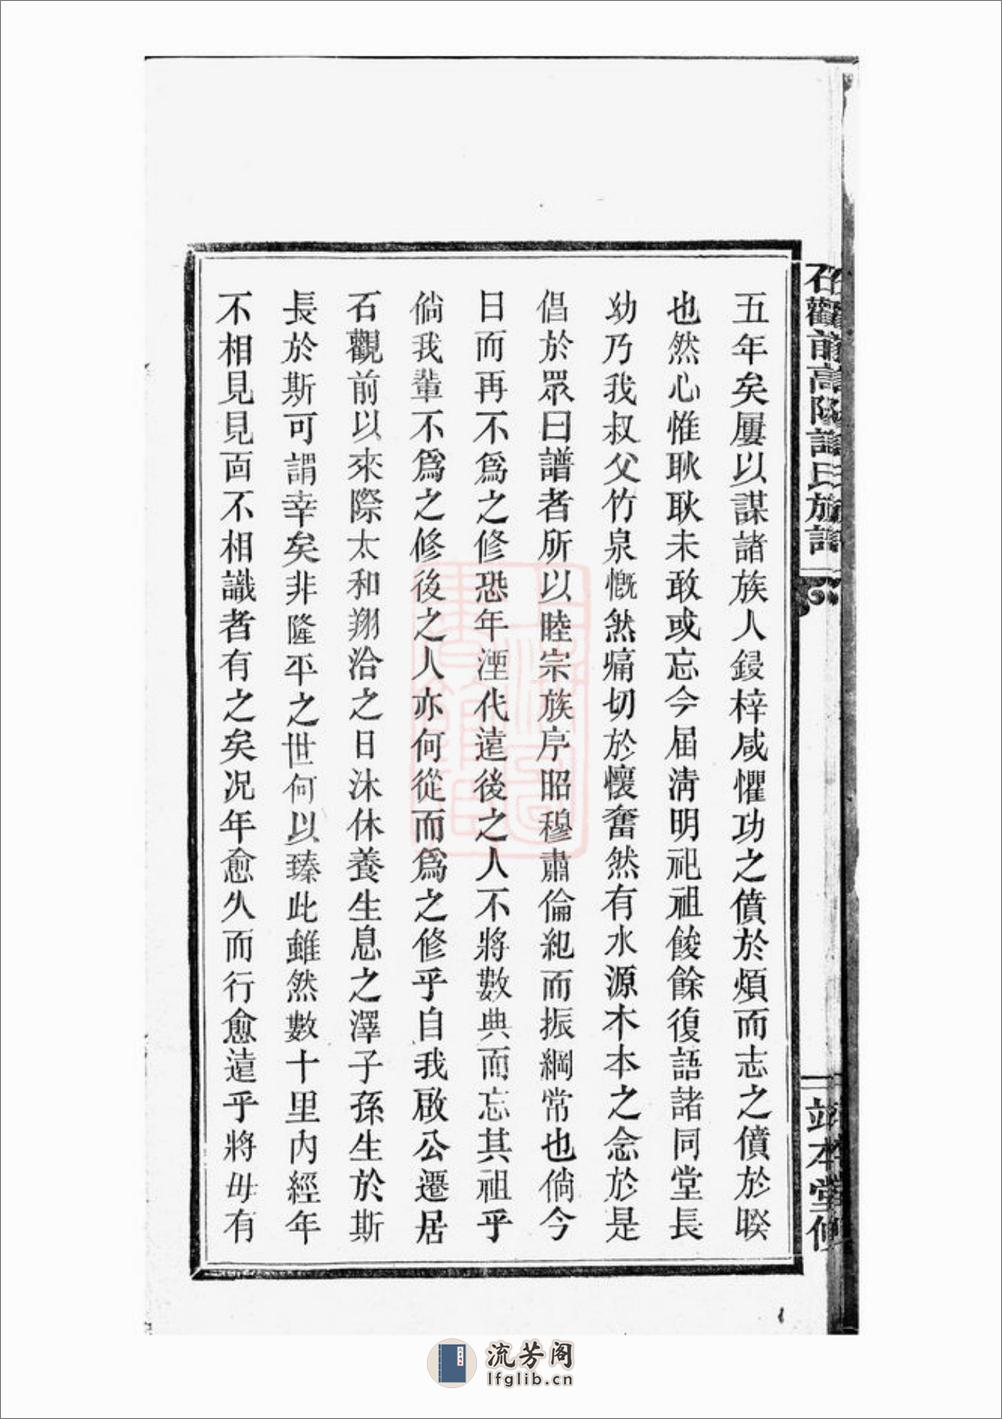 五年矣屢以謀諸族人鋟梓咸懼功之僨於煩而志之僨於睽
也然心惟耿耿未敢或忘今届淸明祀祖餕餘復語諸同堂長
幼乃我叔父竹泉慨然痛切於懷奮然有水源木本之念於是
倡於眾曰譜者所以睦宗族序昭穆肅倫紀而振綱常也倘今
日而再不爲之修恐年湮代遠後之人不將數典而忘其祖乎
倘我輩不爲之修後之人亦何從而爲之修乎自我啟公遷居
石觀前以來際太和翔洽之日沐休養生息之澤子孫生於斯
長於斯可謂幸矣非隆平之世何以臻此雖然數十里内經年
不相見見面不相識者有之矣况年愈久而行愈遠乎將毋有
石觀前高陽許氏族譜
本堂
流芳阁
lfglib.cn